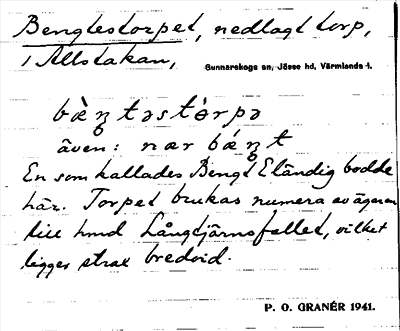 Bengtestorpet, nedlagt torp,
i Allstakan,
Gunnarskogs sn, Jösse hd, Värmlands l.
bæ̀ŋtəstɔ́rpə
även: nær bǽŋt
En som kallades Bengt Eländig bodde
här. Torpet brukas numera av ägaren
till hmd Långtjärnsfallet, vilket
ligger strax bredvid.
P. O. GRANÉR 1941.